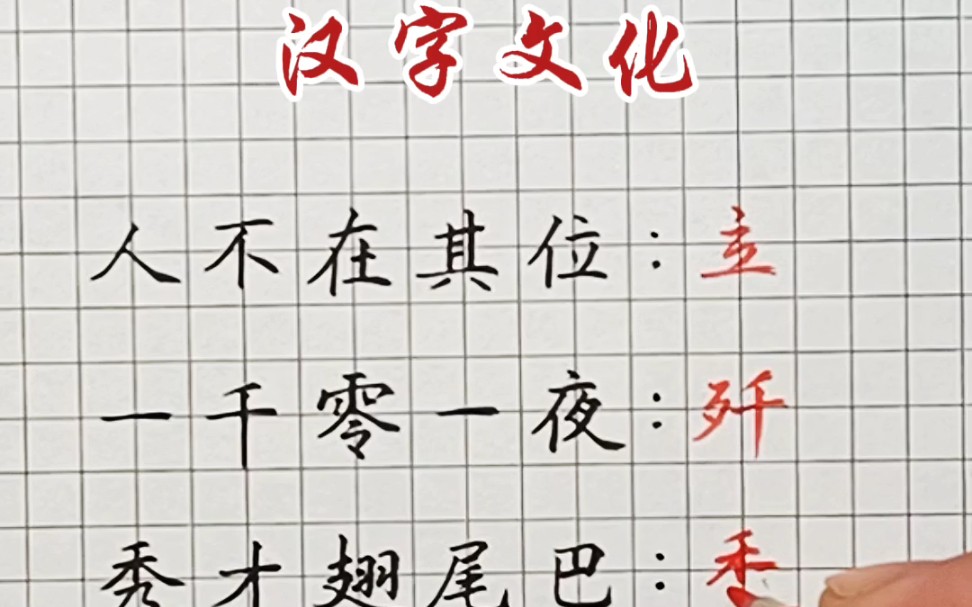 汉字文化
人不在其位:立
一千零一夜:歼
秀才翘尾巴:禾